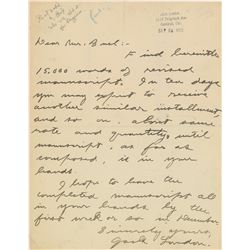 Dear Mr. Buel:–
Find herewith
15,000 words of revised
manuscript. In ten days
you may expect to receive
another similar installment,
and so on. About same
rate and quantity, until
manuscript, as far as
composed, is in your
hands.
I hope to have the
completed manuscript all
in your hands by the
first week or so in December.
Sincerely yours,
Jack London.